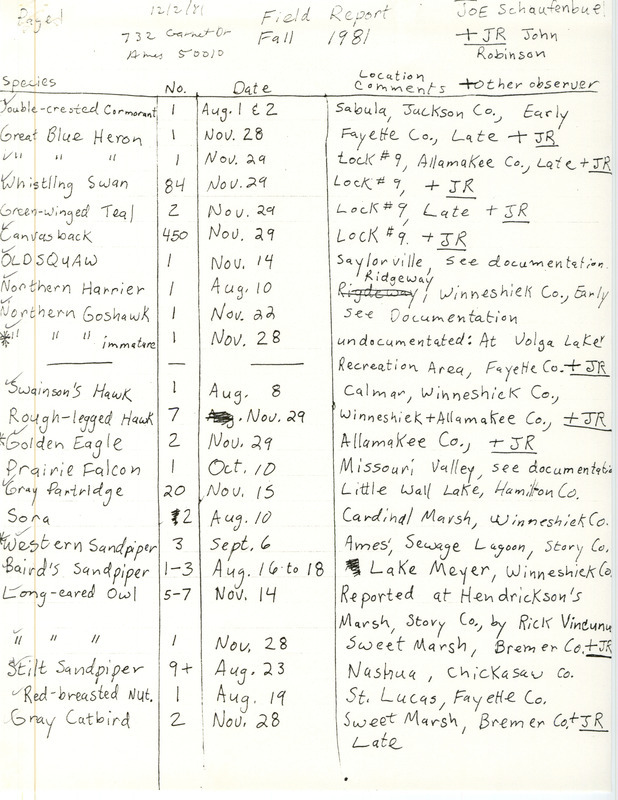 Page 1 12/2/81 Field Report JOE Schaufenbuel
732 Garnet Dr Fall 1981 + JR John
Ames 50010 Robinson
Species No. Date Location Comments + Other observer
Double-crested Cormorant 1 Aug. 1 & 2 Sabula, Jackson Co., Early
Great Blue Heron 1 Nov. 28 Fayette Co., Late + JR
" " " 1 Nov. 29 Lock #9, Allamakee Co., Late + JR
Whistling Swan 84 Nov. 29 Lock #9, + JR
Green-winged Teal 2 Nov. 29 Lock #9, Late + JR
Canvasback 450 Nov. 29 Lock #9. + JR
OLDSQUAW 1 Nov. 14 Saylorville, see documentation.
Northern Harrier 1 Aug. 10 Ridgeway, Winneshiek Co., Early
Northern Goshawk 1 Nov. 22 See Documentation
*" " " immature 1 Nov. 28 undocumented: At Volga Lake
— — — Recreation Area, Fayette Co. + JR
Swainson's Hawk 1 Aug. 8 Calmar, Winneshiek Co.,
Rough-legged Hawk 7 Nov. 29 Winneshiek + Allamakee Co., + JR
*Golden Eagle 2 Nov. 29 Allamakee Co., + JR
Prairie Falcon 1 Oct. 10 Missouri Valley, see documentatio
Gray Partridge 20 Nov. 15 Little Wall Lake, Hamilton Co.
Sora 2 Aug. 10 Cardinal Marsh, Winneshiek Co.
*Western Sandpiper 3 Sept. 6 Ames, Sewage Lagoon, Story Co.
Baird's Sandpiper 1-3 Aug. 16 to 18 Lake Meyer, Winneshiek Co.
Long-eared Owl 5-7 Nov. 14 Reported at Hendrickson's
Marsh, Story Co., by Rick
" " " 1 Nov. 28 Sweet Marsh, Bremer Co. + JR
Stilt Sandpiper 9+ Aug. 23 Nashua, Chickasaw Co.
Red-breasted Nut. 1 Aug. 19 St. Lucas, Fayette Co.
Gray Catbird 2 Nov. 28 Sweet Marsh, Bremer Co. + JR
Late